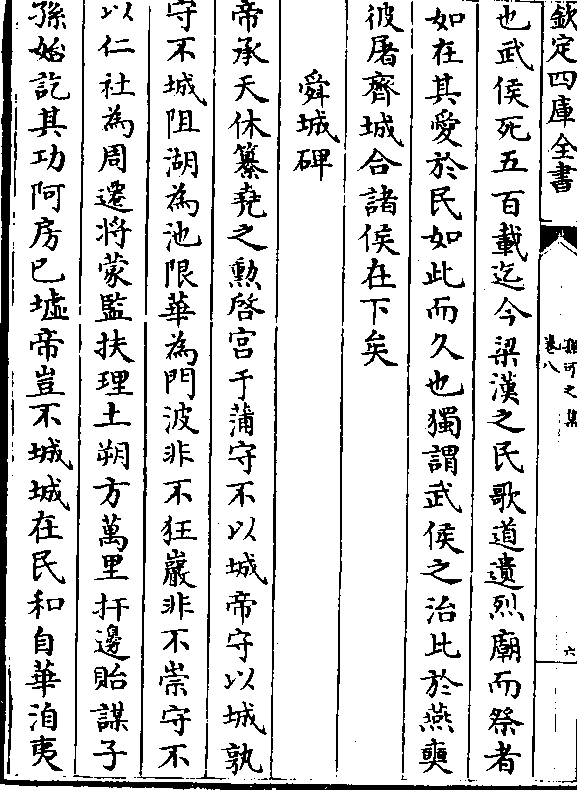 欽定四庫全書
孫可之集
卷八
六
也武侯死五百載迄今梁漢之民歌道遺烈廟而祭者
如在其愛於民如此而久也獨謂武侯之治比於燕奭
彼屠齊城合諸侯在下矣
舜城碑
帝承天休纂堯之勲啓宫于蒲守不以城帝守以城孰
守不城阻湖為池限華為門波非不狂巖非不崇守不
以仁社為周遷將蒙監扶理土朔方萬里扞邊貽謀子
孫始訖其功阿房已墟帝豈不城城在民和自華洎夷